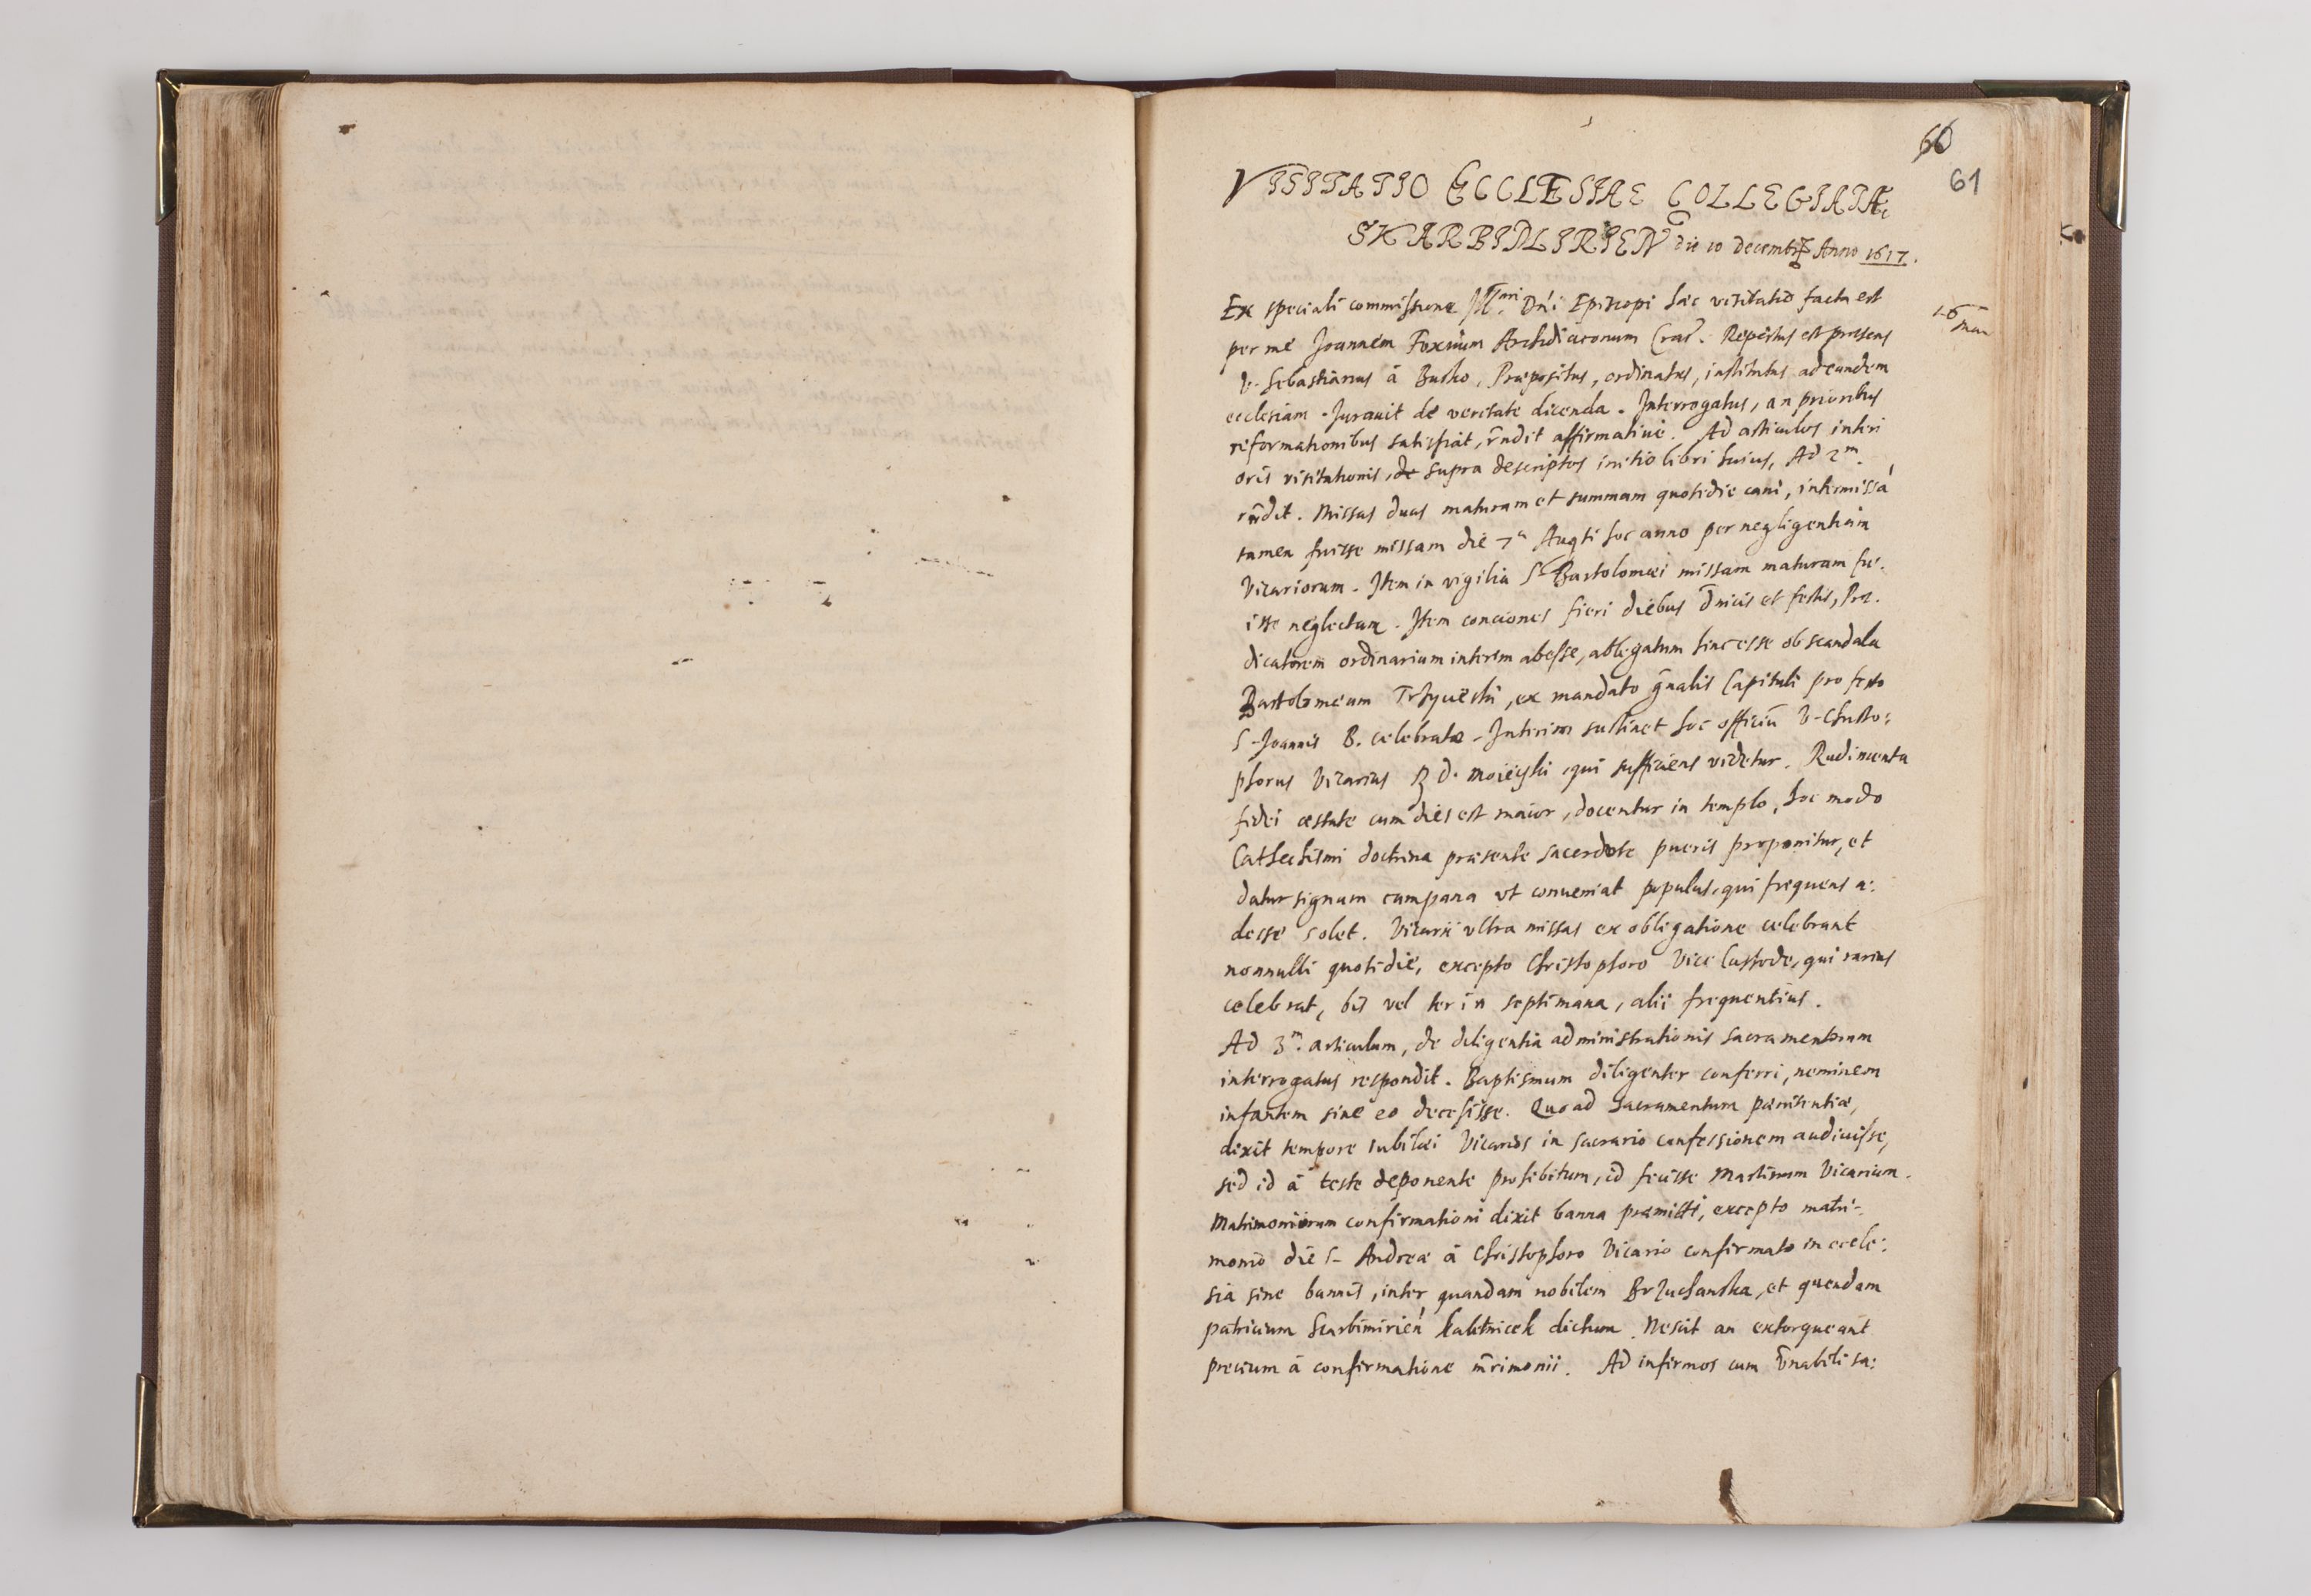 60
61
VISITATIO ECCLESIAE COLLEGIATAE
SKARBIMIRIEN die 10 decembris Anno 1617.
Ex speciali commissione Dni Episcopi hæc visitatio facta est
per me Joannem Foxium Archidiaconum Crac. Repertus est præsens
V. Sebastianus à Busko, Præpositus, ordinatus, institutus ad eandem
ecclesiam. Jurauit de veritate dicenda. Interrogatus, an prioribus
reformationibus satisfiat, rndit affirmatiuè. Ad articulos interi
oris visitationis, supra descriptos initio libri huius, Ad 2m.
rndit. Missas duas maturam et summam quotidie cani, intermissã
tamen fuisse missam die 7a Augti hoc anno per negligentiam
Vicariorum. Item in vigilia S. Bartolomæi missam maturam fu:
isse neglectam. Item conciones fieri diebus dnicis et festis, Præ:
dicatorem ordinarium interim abesse, ablegatum hinc esse ob scandala
Bartolomæum, ex mandato gnalis Capituli pro festo
S. Joannis B. celebratæ. Interim sustinet hoc officiũ V. Christo:
phorus Vicarius R d. qui sufficiens videtur. Rudimenta
fidei æstate cum dies est maior, docentur in templo, hoc modo
Cathechismi doctrina præsente sacerdote pueris proponitur, et
datur signum campana vt conueniat populus, qui frequens a:
desse solet. Vicarii vltra missas ex obligatione celebrant
nonnulli quotidie, excepto Christophoro Vice Custode, qui rarius
celebrat, bis vel ter in septimana, alii frequentius.
Ad 3m. articulum, de diligentia administrationis sacramentorum
interrogatus respondit. Baptismum diligenter conferri, neminem
infantem sine eo decessisse. Quoad Sacramentum pænitentiæ,
dixit tempore Iubilæi Vicarios in sacrario confessionem audiuisse,
sed id à teste deponente prohibitum, id fecisse Martinum Vicarium.
Matrimoniorum confirmationi dixit banna præmitti, excepto matri-
monio die S. Andreæ à Christophoro Vicario confirmato in eccle:
sia sine bannis, inter quandam nobilem Brzuchanska, et quendam
patricium Scarbimirien kaletnicek dictum. Nescit an extorqueant
precium à confirmatione mrimonii. Ad infirmos cum vnabili sa: